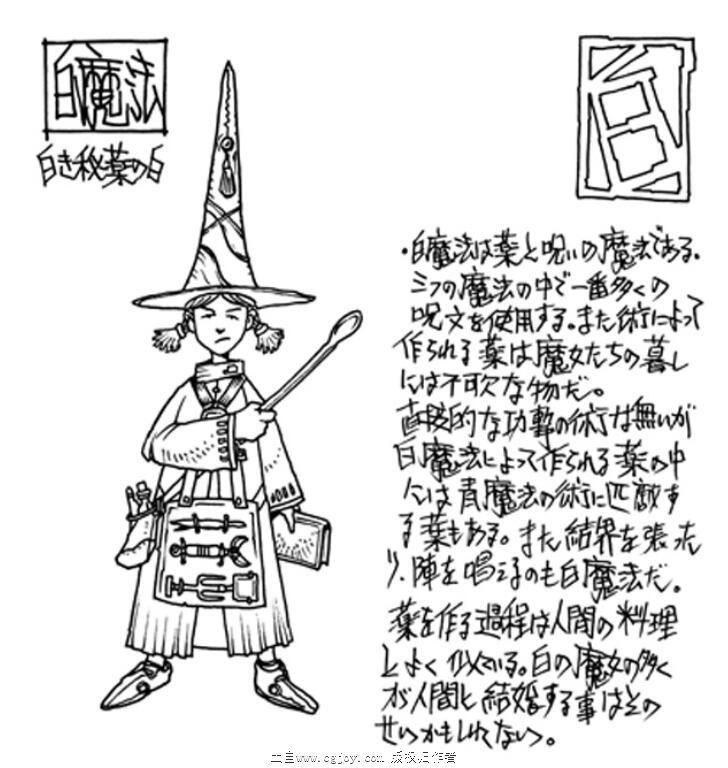 白魔法
白き秘薬の白
白
・白魔法は薬と呪いの魔法である。
三つの魔法の中で一番多くの
呪文を使用する。また術によって
作られる薬は魔女たちの暮し
には不可欠な物だ。
直接的な攻撃の術は無いが
白魔法によって作られる薬の中
には青魔法の術に匹敵す
る薬もある。また結界を張った
り、陣を唱えるのも白魔法だ。
薬を作る過程は人間の料理
とよく似ている。白の魔女の多く
が人間と結婚する事はその
せいかもしれない。
www.cgjoy.com 版权归作者